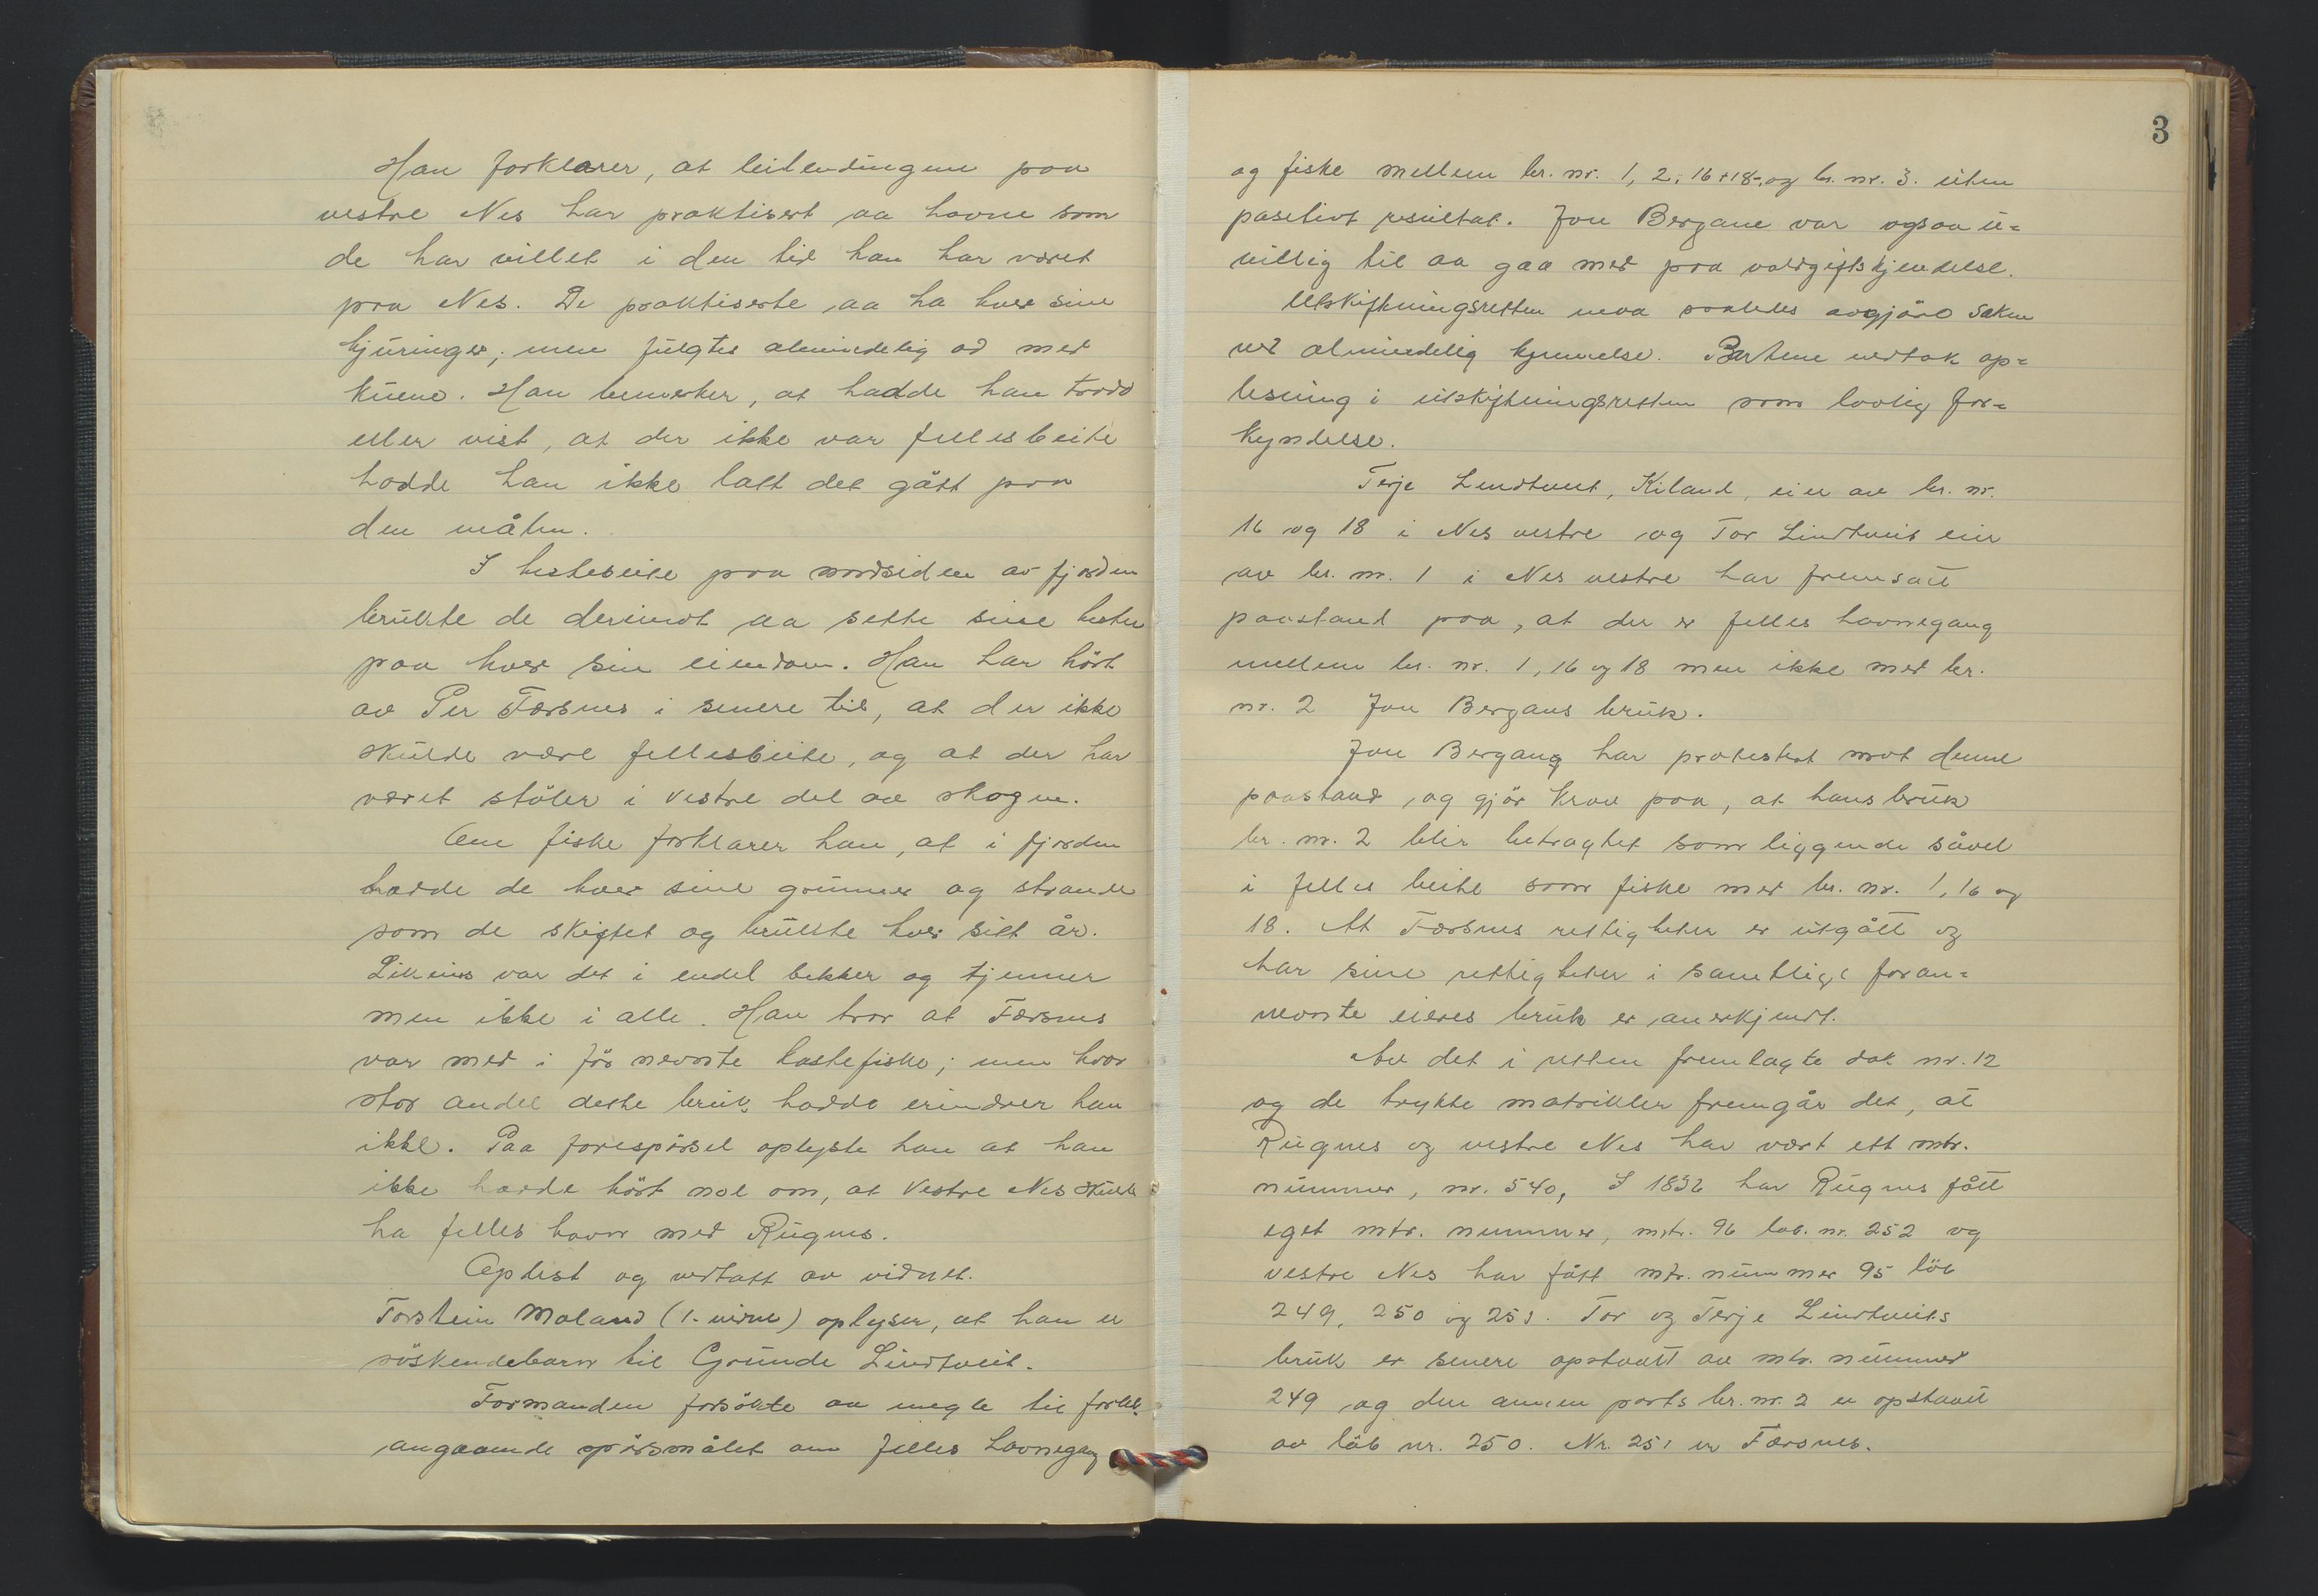 Han forklarer, at leilendingene paa
vestre Nes har praktisert aa havne som
de har villet i den tid han har været
paa Nes. De praktiserte aa ha hver sine
hjuringer; men fulgtes almindelig ad med
kuene. Han bemerker, at hadde han trodd
eller vist, at der ikke var fellesbeite
hadde han ikke latt det gått paa
den måten.
I hestebeite paa nordsiden av fjorden
brukte de derimot aa sette sine hester
paa hver sin eiendom. Han har hört
av Per Færsnes i senere tid, at der ikke
skulde være fellesbeite, og at der har
været stöler i vestre del av skogen.
Om fiske forklarer han, at i fjorden
hadde de hver sine grunner og strande
som de skiftet og brukte hver sitt år.
Likeens var det i endel bekker og tjenner
men ikke i alle. Han tror at Færsnes
var med i för nevnte kastefiske; men hvor
stor andel dette bruk hadde erindrer han
ikke. Paa forespörsel oplyste han at han
ikke hadde hört noe om, at Vestre Nes skulde
ha felles havn med Rugnes.
Oplest og vedtatt av vidnet.
Torstein Moland (1. vidne) oplyser, at han er
söskendebarn til Gunde Lindtveit.
Formanden forsökte aa megle til forlik
angaaende spörsmålet om felles havnegang
3
og fiske mellem br. nr. 1, 2, 16 + 18, og br. nr. 3. uten
positivt resultat. Jon Bergane var ogsaa u=
villig til aa gaa med paa voldgiftskjendelse.
Utskiftningsretten maa saaledes avgjöre saken
ved almindelig kjennelse. Partene vedtok op=
lesning i utskiftningsretten som lovlig for=
kyndelse.
Terje Lindtveit, Kiland, eier av br. nr.
16 og 18 i Nes vestre og Tor Lindtveit eier
av br. nr. 1 i Nes vestre har fremsatt
paastand paa, at der er felles havnegang
mellem br. nr. 1, 16 og 18 men ikke med br.
nr. 2 Jon Bergans bruk.
Jon Bergang har protestert mot denne
paastand, og gjör krav paa, at hans bruk
br. nr. 2 blir betragtet som liggende såvel
i felles beite som fiske med br. nr. 1, 16 og
18. At Færsnes rettigheter er utgått og
har sine rettigheter i samtlige foran=
nevnte eieres bruk er anerkjendt.
Av det i retten fremlagte dok nr. 12
og de trykte matrikler fremgår det, at
Rugnes og vestre Nes har vært ett mtr.
nummer, nr. 540, I 1832 har Rugnes fått
eget mtr. nummer, mtr. 96 löb. nr. 252 og
vestre Nes har fått mtr. nummer 95 löb
249, 250 og 251. Tor og Terje Lindtveits
bruk er senere opstaatt av mtr. nummer
249 og den annen parts br. nr. 2 er opstaatt
av löb nr. 250. Nr. 251 er Færsnes.